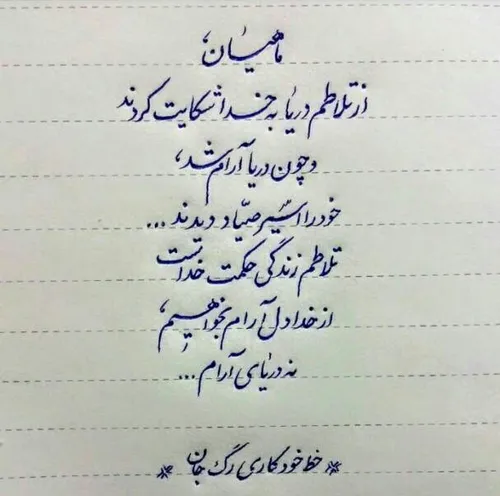 ماهیان،
از تلاطم دریا به خدا شکایت کردند
و چون دریا آرام شد،
خود را اسیر صیّاد دیدند ...
تلاطم زندگی حکمت خداست
از خدا دل آرام بخواهیم،
نه دریای آرام ...
* خط خودکاری رگ جان *